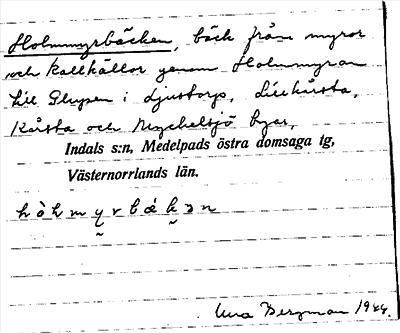 Holmmyrbäcken, bäck från myror
och kallkällor genom Holmmyran
till Glupen i Ljustorp,
Kårsta och Mychelsjö byar,
Indals s:n, Medelpads östra domsaga tg,
Västernorrlands län.
Bergman 1944.